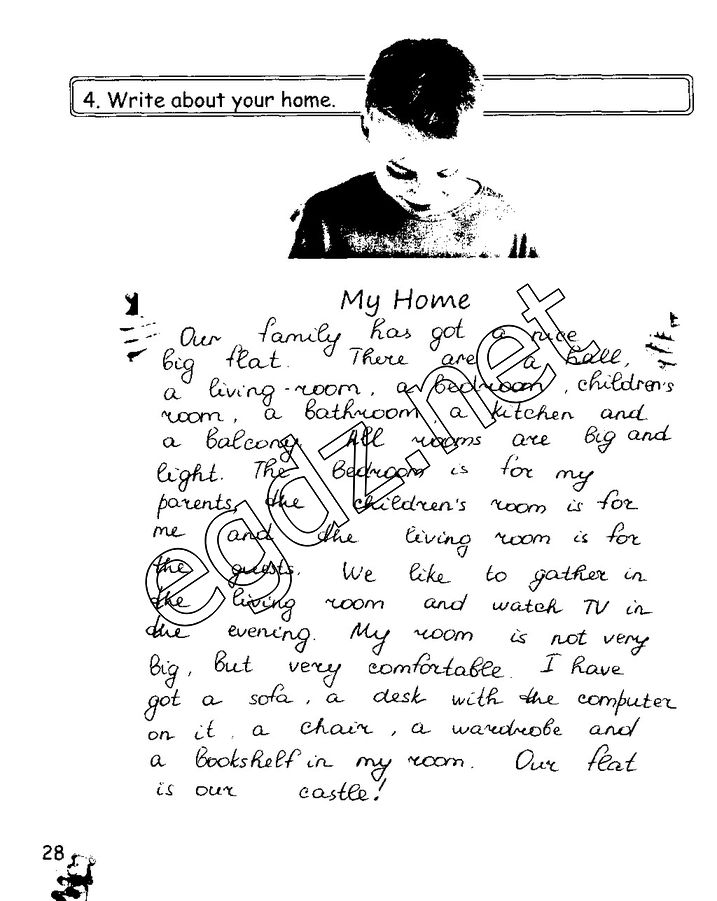 4. Write about your home.
My Home
Our family has got a nice
big flat. There are a hall,
a living-room, a bedroom, children's
room, a bathroom, a kitchen and
a balcony. All rooms are big and
light. The bedroom is for my
parents, the children's room is for
me and the living room is for
the guests. We like to gather in
the living room and watch TV in
the evening. My room is not very
big, but very comfortable. I have
got a sofa, a desk with the computer
on it, a chair, a wardrobe and
a bookshelf in my room. Our flat
is our castle!
egdz.net
28